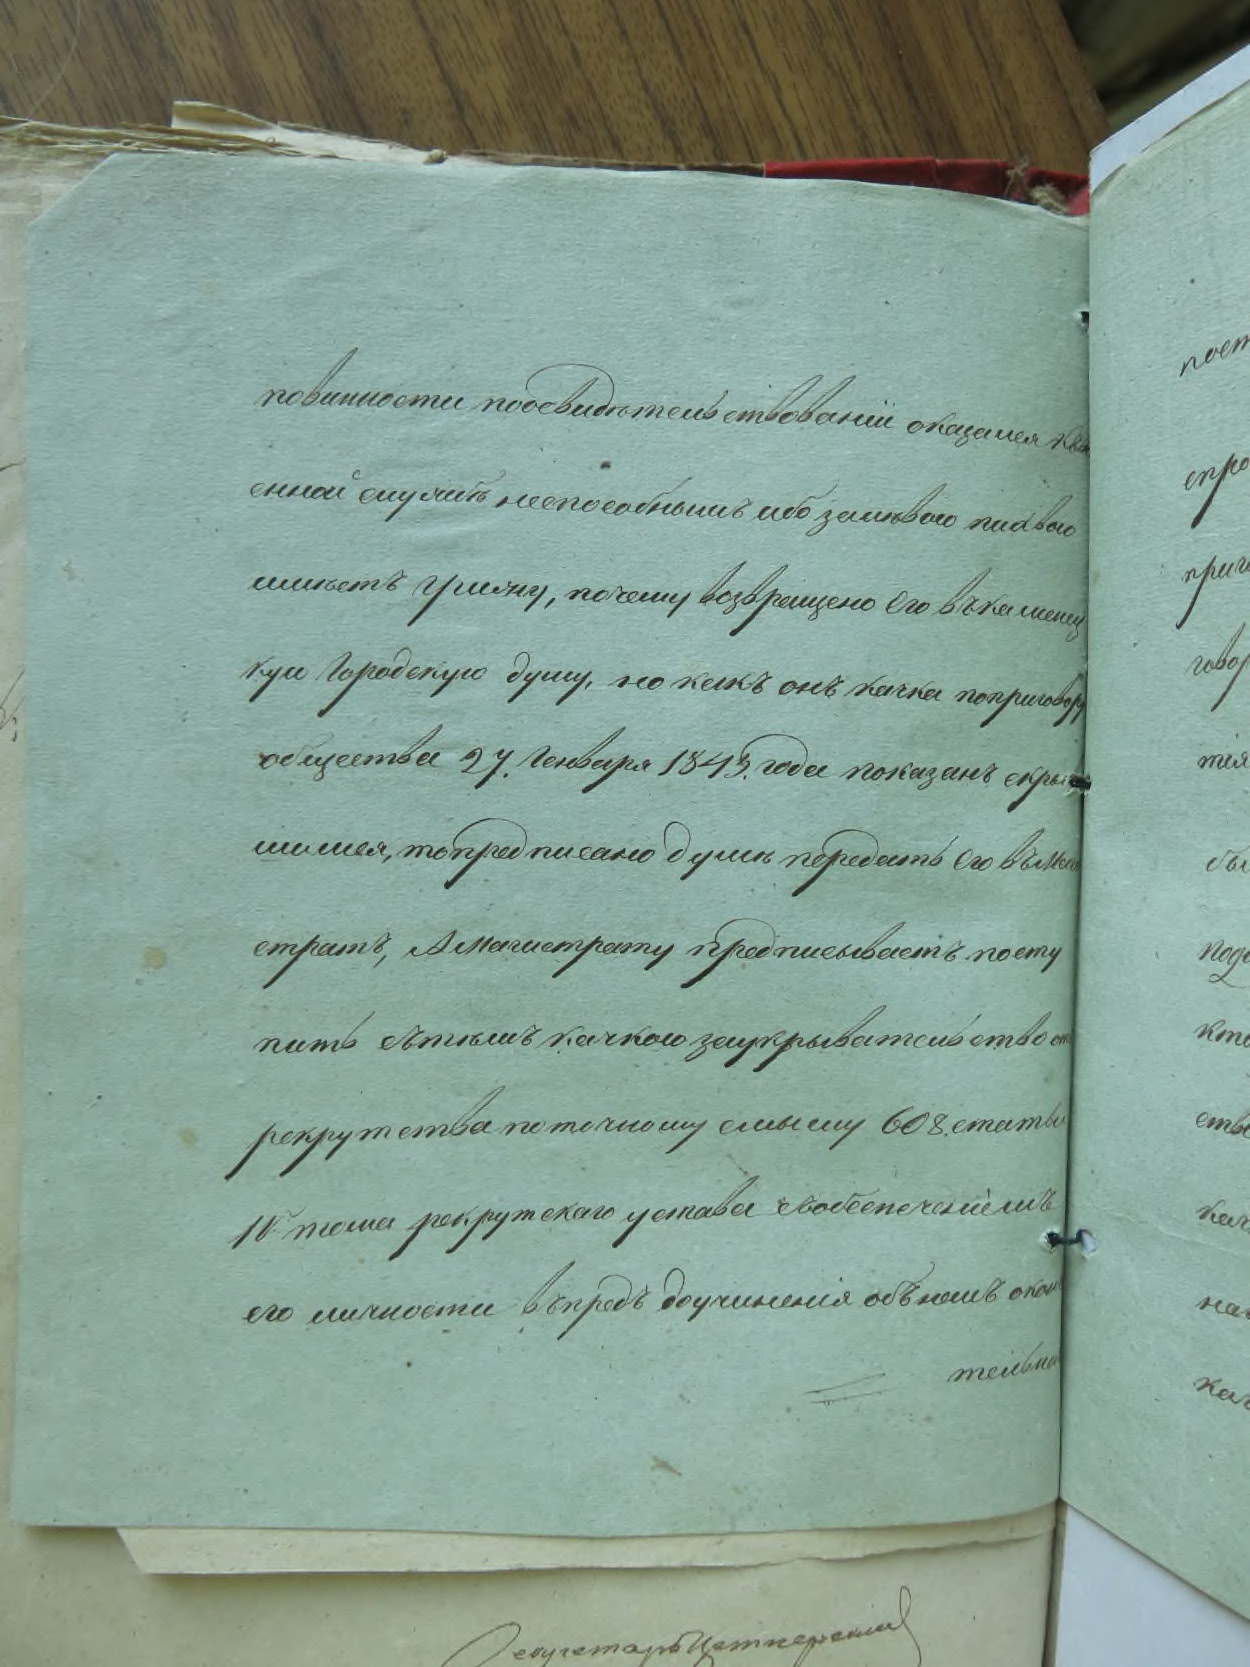 повинности поосвидѣтельствованіи оказался къво
енной службѣ неспособнымъ ибо залѣвою пахвою
имѣетъ грыжу, почему возвращено его въ каменец
кую Городскую думу, но какъ онъ качка поприговору
общества 27. Генваря 1843. года показанъ скрыв
шимся, то предписано думѣ передать его въ Маги
стратъ, А Магистрату предписываетъ посту
пить сѣтимъ качкою заукрывательство от
рекрутства по точному смыслу 608. статьи
IV тома рекрутскаго устава свобезпеченіемъ
его личности впредь доучиненія объ немъ окон
тельна
пост
спро
приг
говор
тія
бы
подо
кто
ство
кач
на
кач
Секретарь